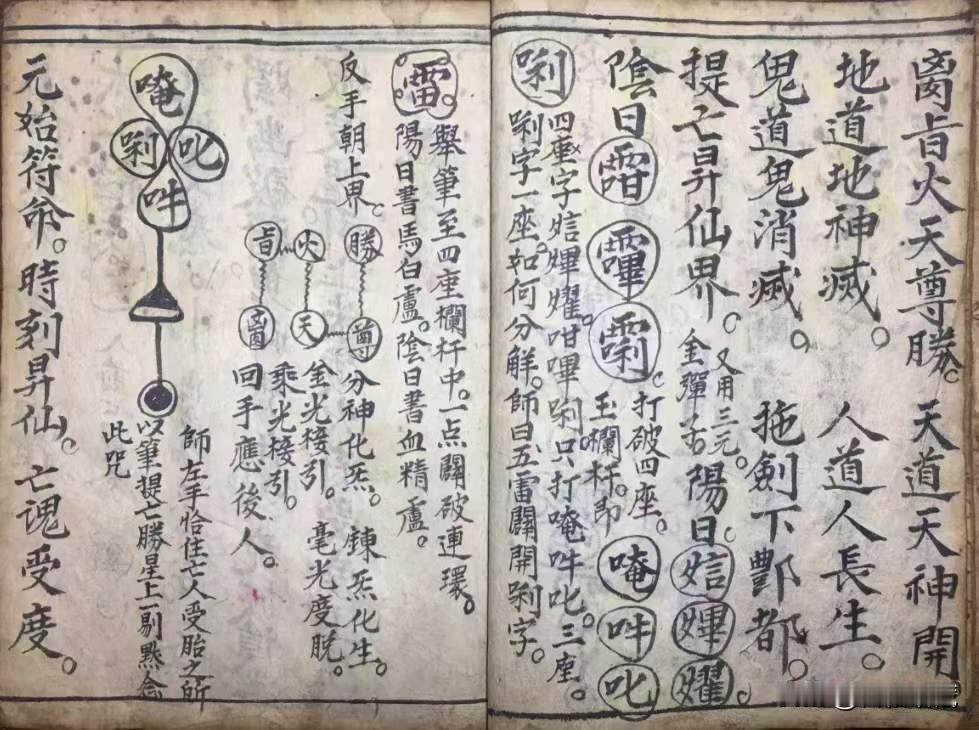 旨火天尊勝。天道天神開
地道地神滅。人道人長生。
鬼道鬼消滅。拖劍下酆都。
提亡昇仙界。又用三元。
金彈子。陽日
陰日
打破四座。
玉欄杆。即
唵吽叱
唎
四座字唎只打唵吽叱。三座。
唎字一座。如何分解。師曰五雷闢開唎字。
舉筆至四座欄杆中。一点闢破連環。
陽日書馬白盧。陰日書血精盧。
反手朝上界。
勝火旨
尊天
分神化炁。鍊炁化生。
金光接引。毫光度脱。
乘光接引。
回手應後人。
師左手恰住亡人受胎之所
以筆提亡勝星上一剔默念
此咒
唵
唎叱
吽
元始符命。時刻昇仙。亡魂受度。